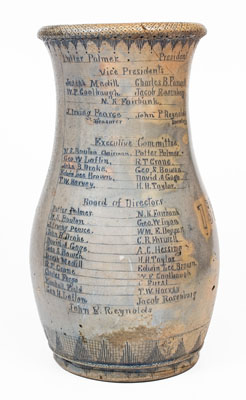 Potter Palmer. President
Vice Presidents
Joseph Medill Charles B. Farwell
W.F. Coolbaugh Jacob Rosenberg
N.K. Fairbank
J. Irving Pearce John P. Reynolds
Treasurer Secretary
Executive Committee
Chairman. Potter Palmer.
Geo. W. Laflin. R.T. Crane.
John B. Drake. Geo. S. Bowen
Edwin Lee Brown. David A. Gage
T.W. Harvey. H.H. Taylor.
Board of Directors
Potter Palmer. N.K. Fairbank
Geo.
J. Irving Pearce. Wm. K.
J.B. Drake.
David A. Gage A.C. Hesing
Geo. S. Bowen H.H. Taylor
Joseph Medill Edwin Lee Brown.
R.T. Crane W.F. Coolbaugh
T.W. Harvey
Jacob Rosenberg
John P. Reynolds